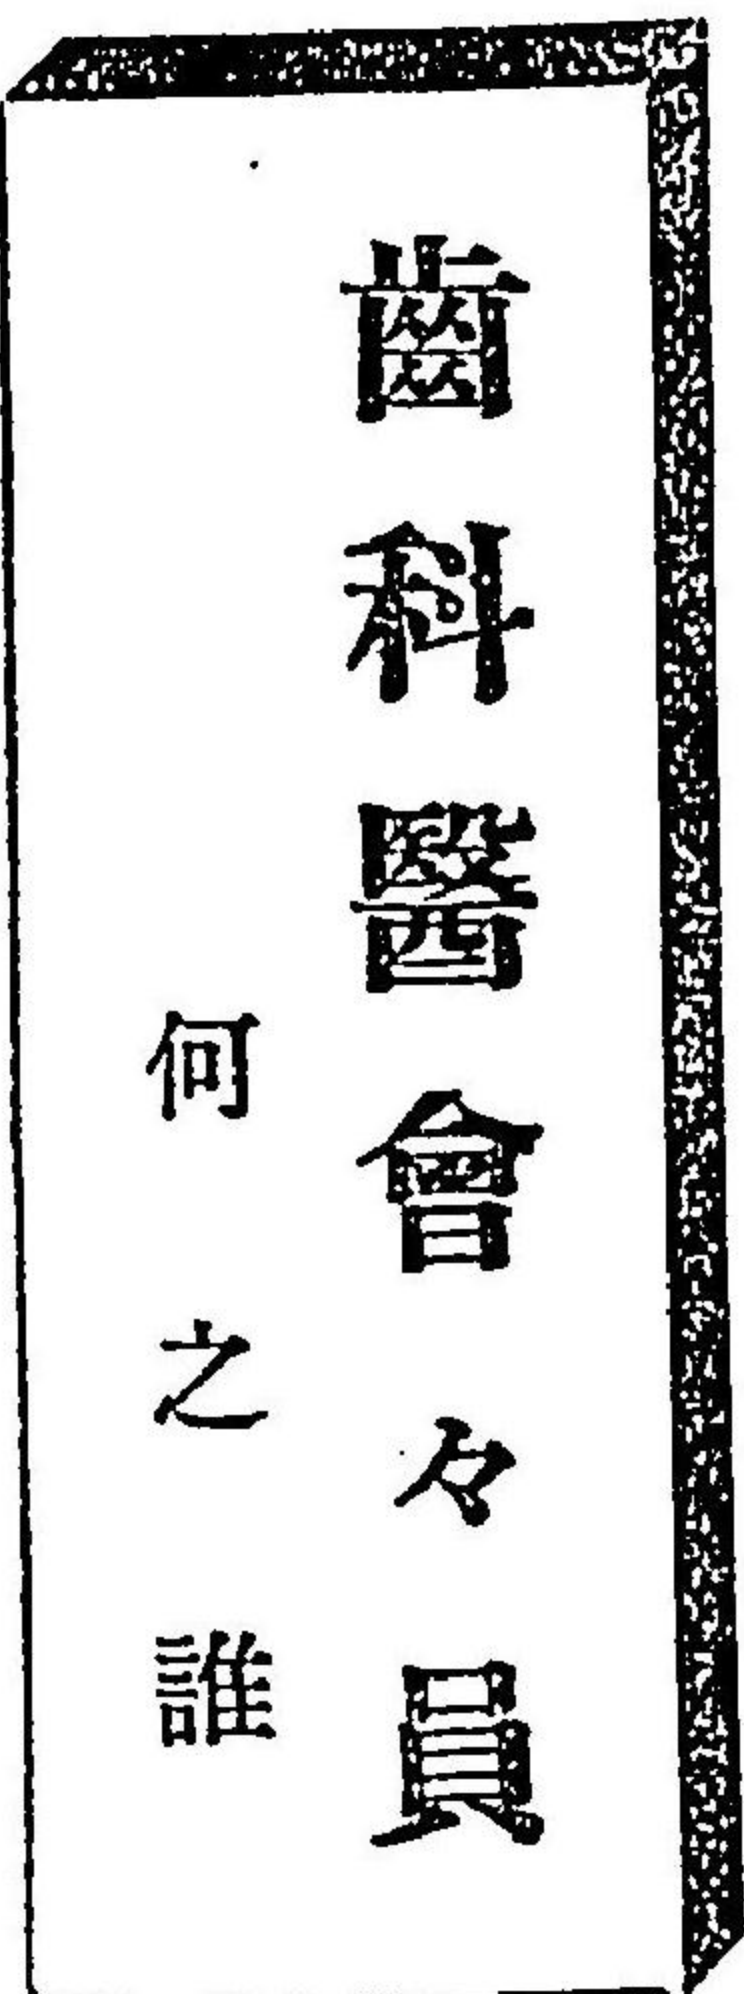 齒科醫會々員
何之誰